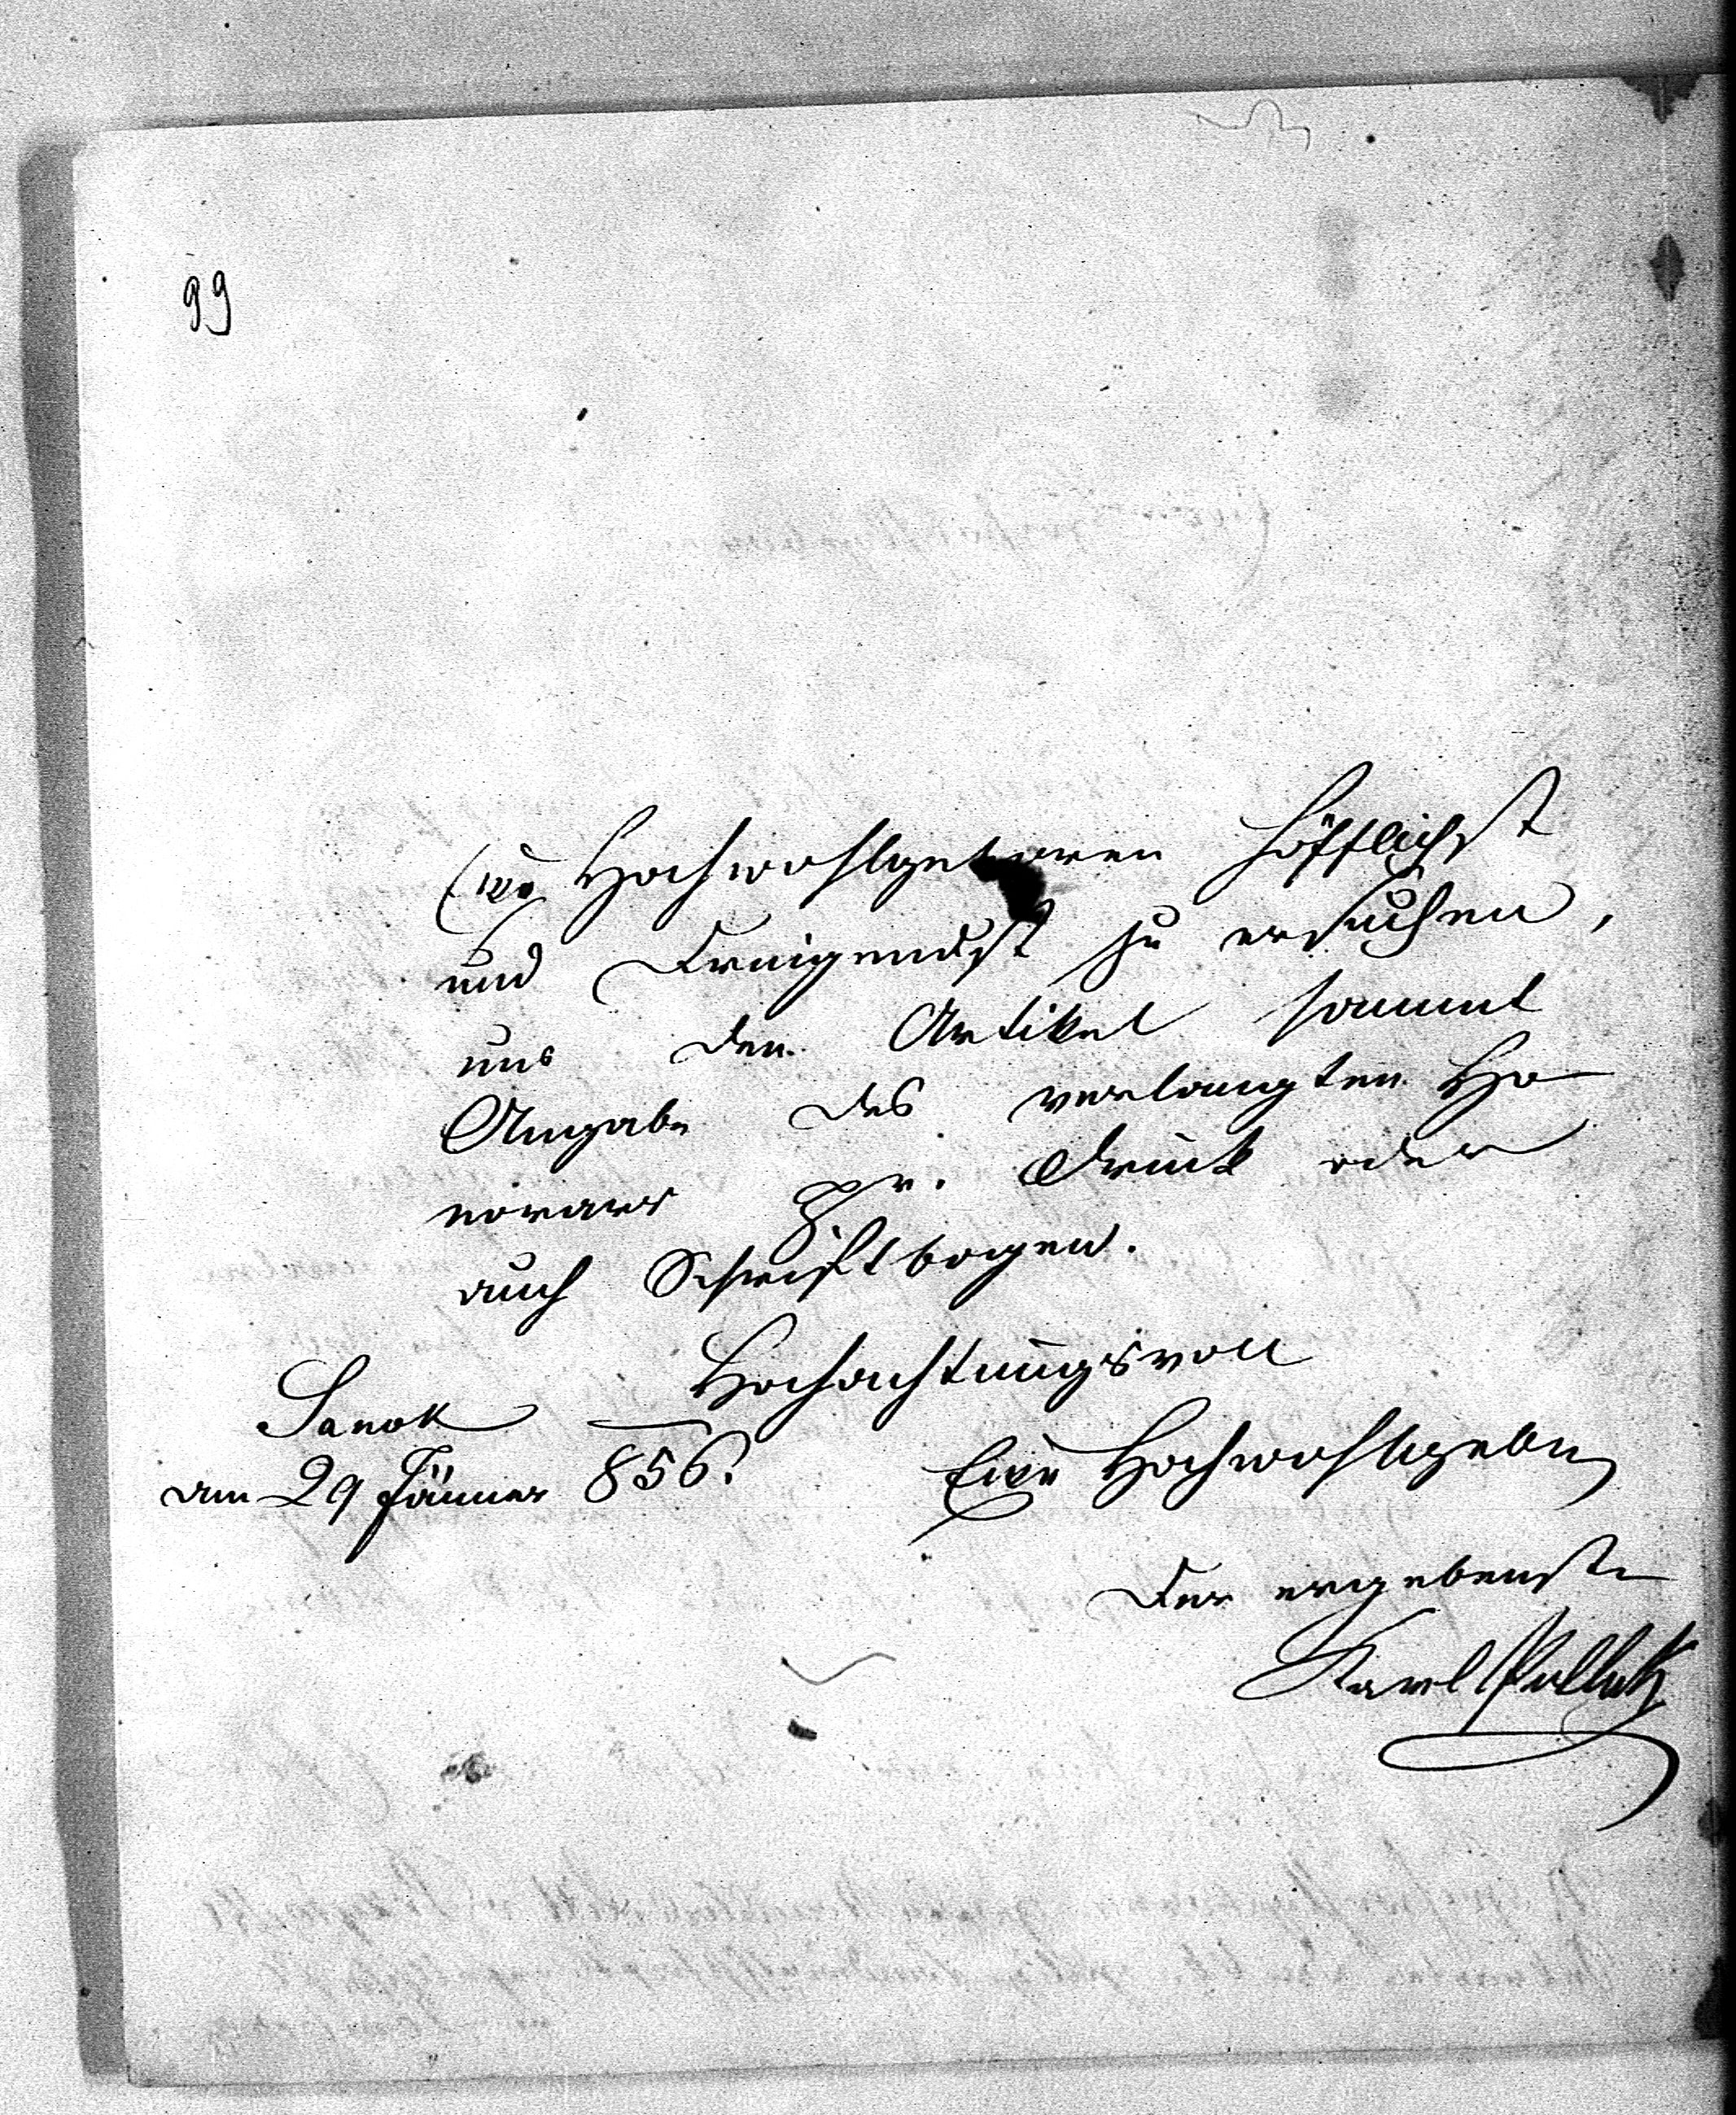 99
Eure Hochwohlgeboren höfflichst
und dringendst zu ersuchen,
uns den Artikel sammt
Angabe des verlangten Ho-
norars pr. Druck oder
auch Schriftbogen.
Hochachtungsvoll
Sanok
am 29 Jänner 856.
Eure Hochwohlgeb
Der ergebenste
Karl Pollak